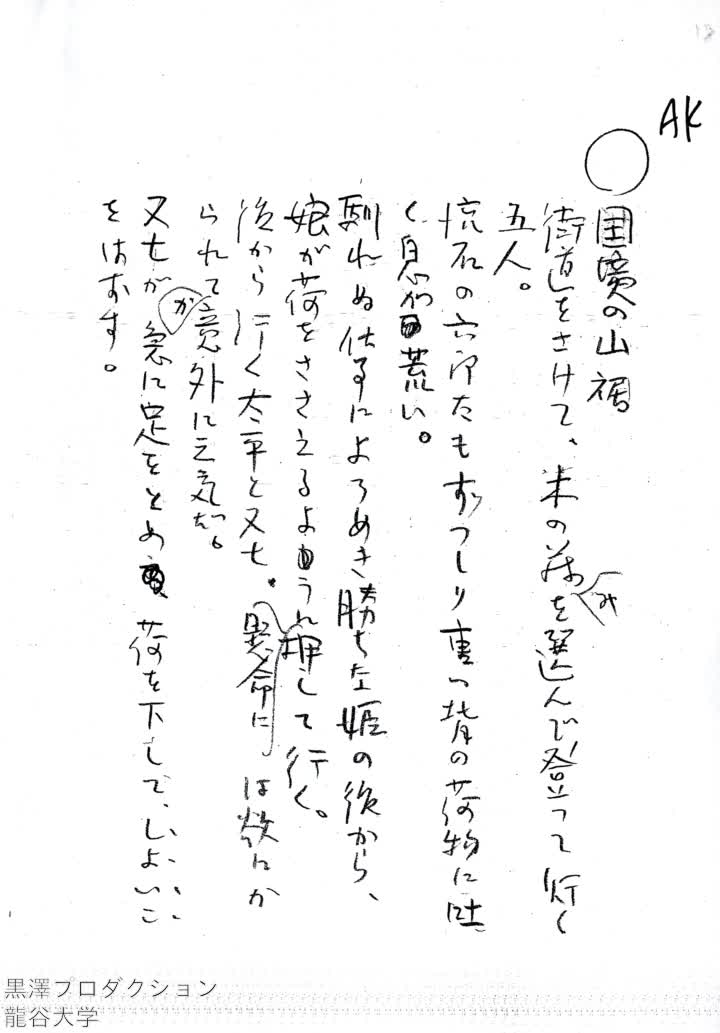 AK
○ 国境の山裾
街道をさけて、木の茂みを選んで登って行く
五人。
流石の六郎太もずっしり重い背の荷物に吐
く息が荒い。
馴れぬ仕事によろめき勝ちな姫の後から、
娘が荷をささえるように押して行く。
後から行く太平と又七。懸命に は欲にか
られて意外に元気だ。
又七が急に足をとめ、荷を下して、しょいこ
をはずす。
黒澤プロダクション
龍谷大学